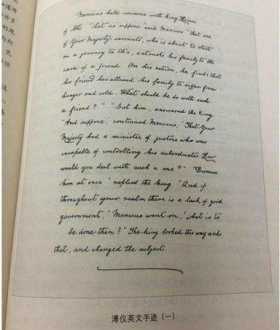 Mencius held converse with King Hsuan
of Chi "Let us suppose" said Mencius "that one
of Your Majesty's servants, who is about to start
on a journey to Chu, entrusts his family to the
care of a friend. On his return, he finds that
his friend has allowed his family to suffer from
hunger and cold. What should he do with such
a friend?" "Cast him, answered the King
"And suppose, continued Mencius, "That Your
Majesty had a minister of justice who was
incapable of controlling his subordinates How
would you deal with such a one?" "Dismiss
him at once" replied the King "And if
throughout your realm there is a lack of good
government" Mencius went on, "What is to
be done then?" The king looked this way and
that, and changed the subject.
溥仪英文手迹（一）